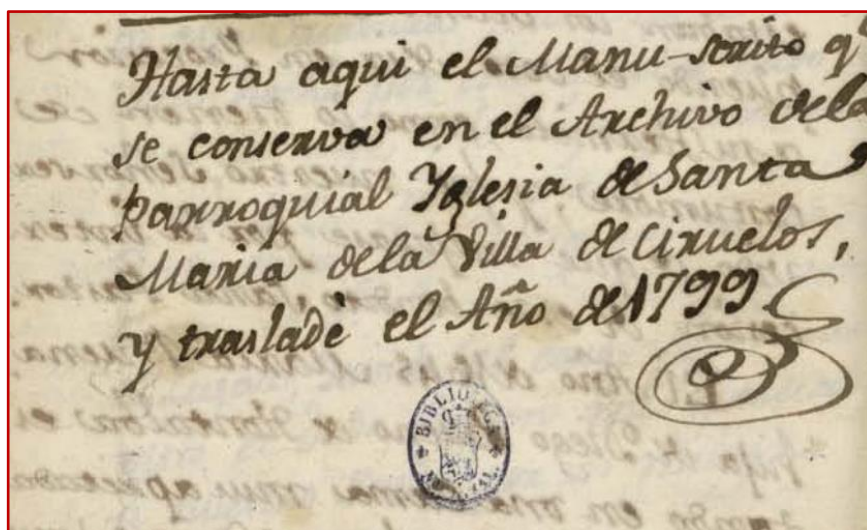 Hasta aqui el Manu-scrito q.e
se conserva en el Archivo dela
parroquial Yglesia de Santa
Maria dela Villa de Ciruelos,
y trasladè el Año de 1799
BIBLIOTECA